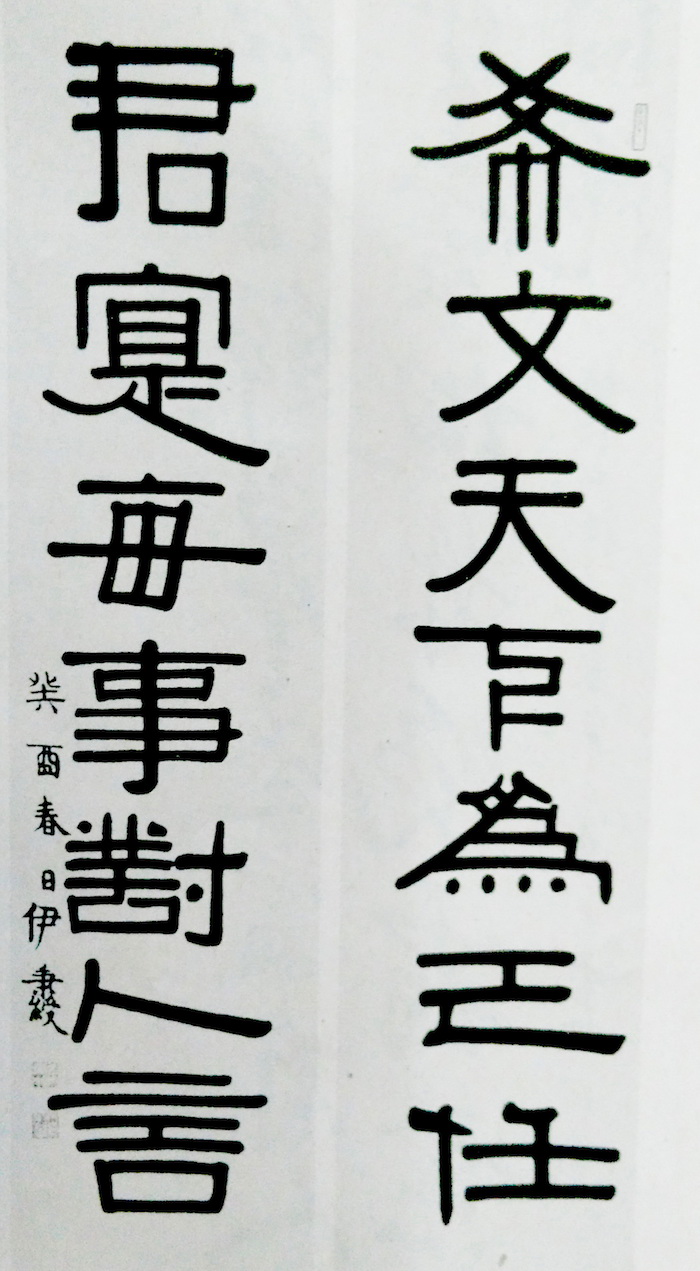 希文天下為己任
君寔毎事對人言
癸酉春日伊秉綬